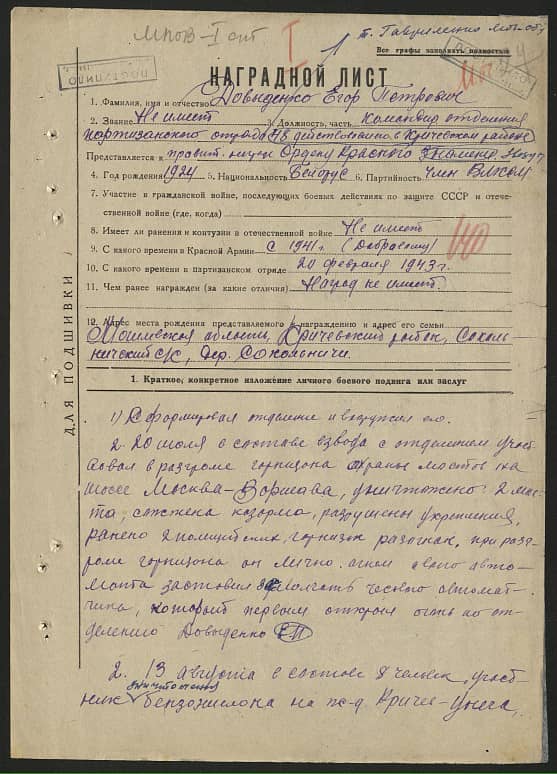 МПОВ-I
I
1
т. Гавриленко
Все графы заполнять полностью
ПОСТУПИЛО
НАГРАДНОЙ ЛИСТ
1. Фамилия, имя и отчество Довыденко Егор Петрович
2. Звание Не имеет 3. Должность, часть Командир отделения
партизанского отряда 48 действовавшего в Кричевском районе
Представляется к правит. награде Ордену Красного Знамени
4. Год рождения 1924 5. Национальность Белорус 6. Партийность член ВЛКСМ
7. Участие в гражданской войне, последующих боевых действиях по защите СССР и отече-
ственной войне (где, когда)
8. Имеет ли ранения и контузии в отечественной войне Не имеет
9. С какого времени в Красной Армии с 1941г. (Добрushу)
10. С какого времени в партизанском отряде 20 февраля 1943г.
11. Чем ранее награжден (за какие отличия) Наград не имеет.
140
12. Адрес места рождения представляемого к награждению и адрес его семьи
Могилевская область, Кричевский район, Соколь-
ничский с/с, дер. Сокольничи.
ДЛЯ ПОДШИВКИ
1. Краткое, конкретное изложение личного боевого подвига или заслуг
1) Сформировал отделение и вооружил его.
2. 20 июля в составе взвода с отделением участ
вовал в разгроме гарнизона охраны мостов на
шоссе Москва-Варшава, уничтожено 2 мос
та, сожжена казарма, разрушены укрепления,
ранено 2 полицейских, гарнизон разогнан, при разг
роме гарнизона он лично огнем своего авто-
мата заставил замолчать часового автомат-
чика, который первым открыл огонь по от
делению Довыденко
2. 13 августа в составе 8 человек, участ-
ник уничтожения бензоцилока на ж-д Кричев-Унеча,